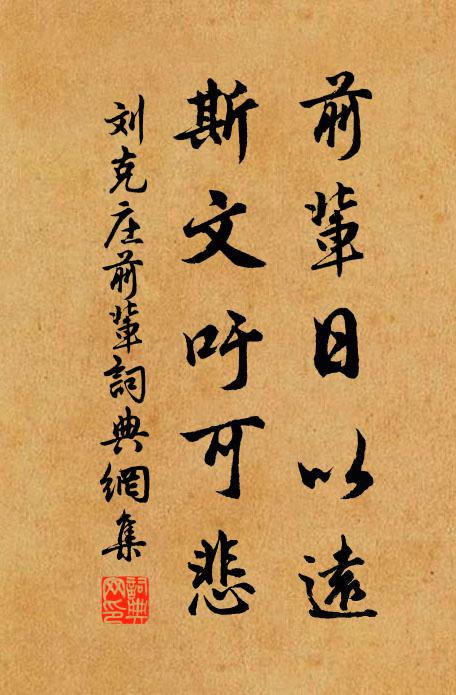 前輩日以遠
斯文吁可悲
刘克庄前輩詞典網集
詞典网印